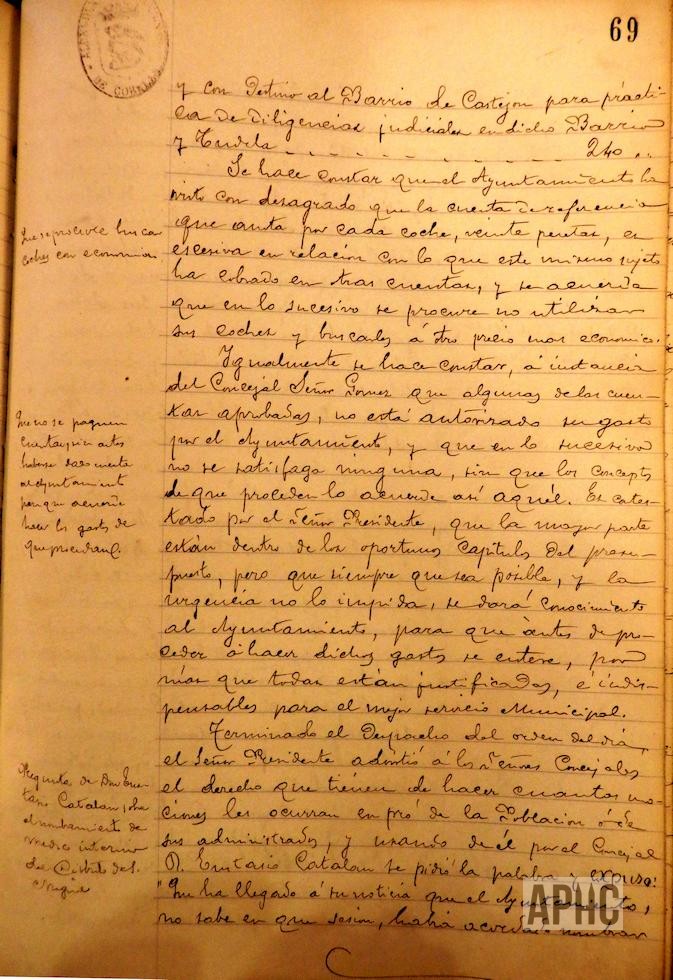 69
y con Destino al Barrio de Castejon para prácti-
ca de diligencias judiciales en dicho Barrio
y Tudela 240 "
Se hace constar que el Ayuntamiento ha
visto con desagrado que la cuenta de referencia
que anota por cada coche, veinte pesetas, es
escesiva en relación con lo que este mismo sujeto
ha cobrado en otras cuentas, y se acuerda
que en lo sucesivo se procure no utilizar
sus coches y buscarles á otro precio mas economico.
Igualmente se hace constar, á instancia
del Concejal Señor Gomez que algunas de las cuen-
tas aprobadas, no está autorizado su gasto
por el Ayuntamiento, y que en lo sucesivo
no se satisfaga ninguna, sin que los conceptos
de que proceden lo acuerde asi aquél. Es contes-
tado por el Señor Presidente, que la mayor parte
están dentro de los oportunos Capitulos del presu-
puesto, pero que siempre que sea posible, y la
urgencia no lo impida, se dará conocimiento
al Ayuntamiento, para que ántes de pro-
ceder á hacer dichos gastos se entere, por
más que todas están justificadas, é indis-
pensables para el mejor servicio Municipal.
Terminado el Despacho del orden del dia,
el Señor Presidente advirtió á los Señores Concejales
el derecho que tienen de hacer cuantas mo-
ciones les ocurran en pró de la Poblacion ó de
sus administrados, y usando de él por el Concejal
D. Eustasio Catalan se pidió la palabra y expuso:
"Que ha llegado á su noticia que el Ayuntamiento,
no sabe en que sesion, habia acordado nombrar
Que se procure buscar
coches con economia
Que no se paguen
cuentas, sin antes
haberse dado cuenta
al Ayuntamiento
para que acuerde
hacer los gastos de
que procedan.
Pregunta de Don Eus-
tasio Catalan sobre
el nombramiento de
medico interino
del Distrito de S.
APHC